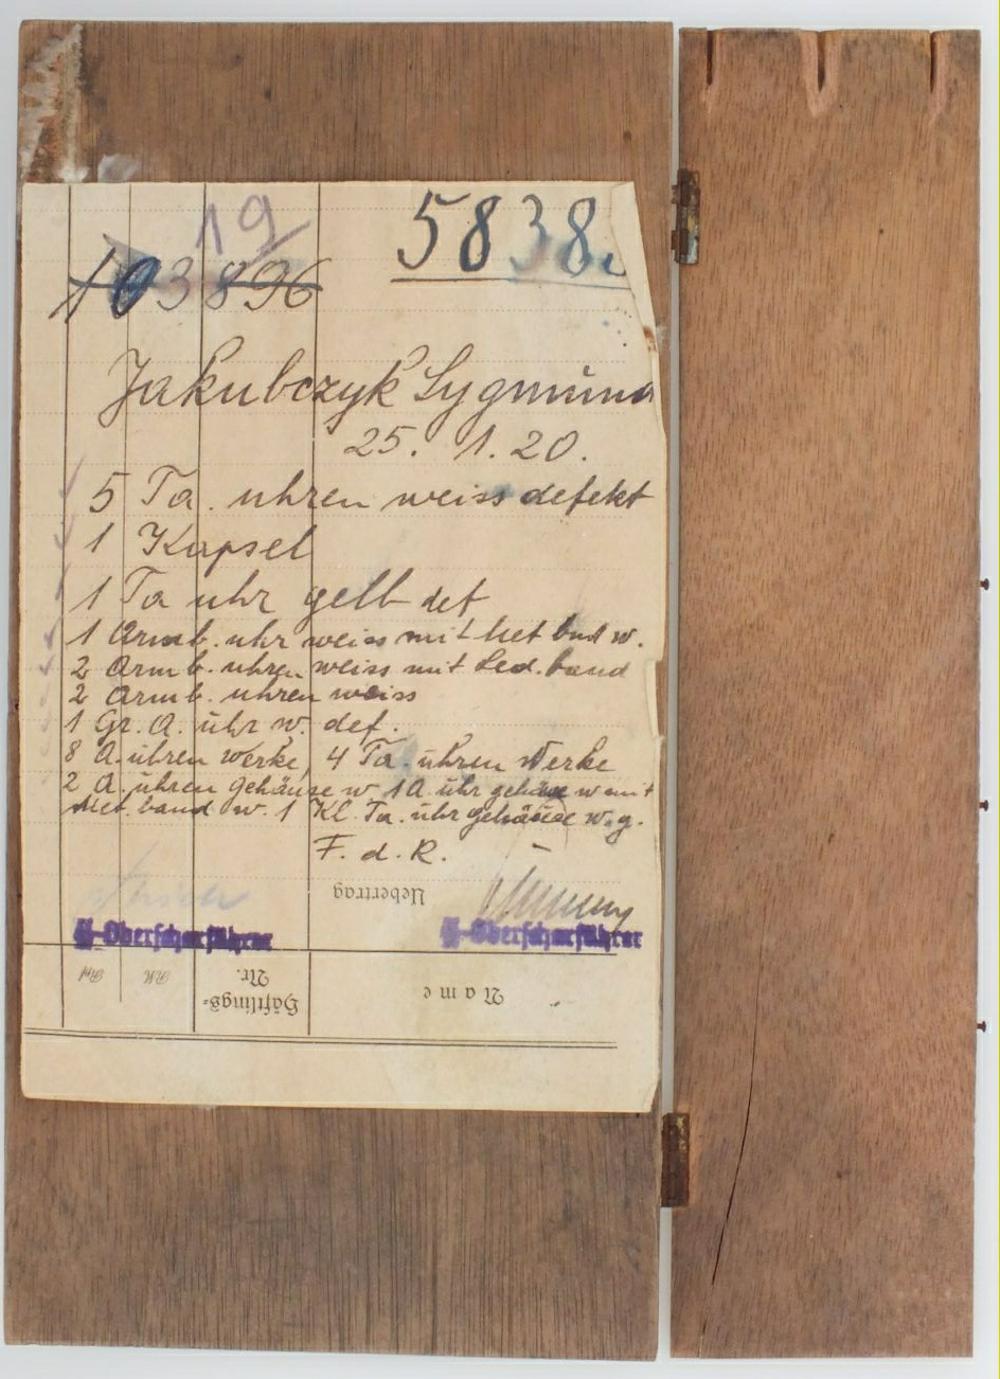 19
103896
5838
Jakubczyk Zygmund
25. 1. 20.
5 Ta. uhren weiss defekt
1 Kapsel
1 Ta uhr gelb def
1 Armb. uhr weiss mit Met band w.
2 Armb. uhren weiss mit Led. band
2 Armb. uhren weiss
1 Gr. A. uhr w. def.
8 A. uhren werke, 4 Ta. uhren Werke
2 A. uhren gehäuse w, 1 A. uhr gehäuse w mit
Met. band w. 1 Kl. Ta. uhr gehäuse w. g.
F. d. R.
Uebertrag
SS-Oberscharführer SS-Oberscharführer
Häftlings-Nr.
Name